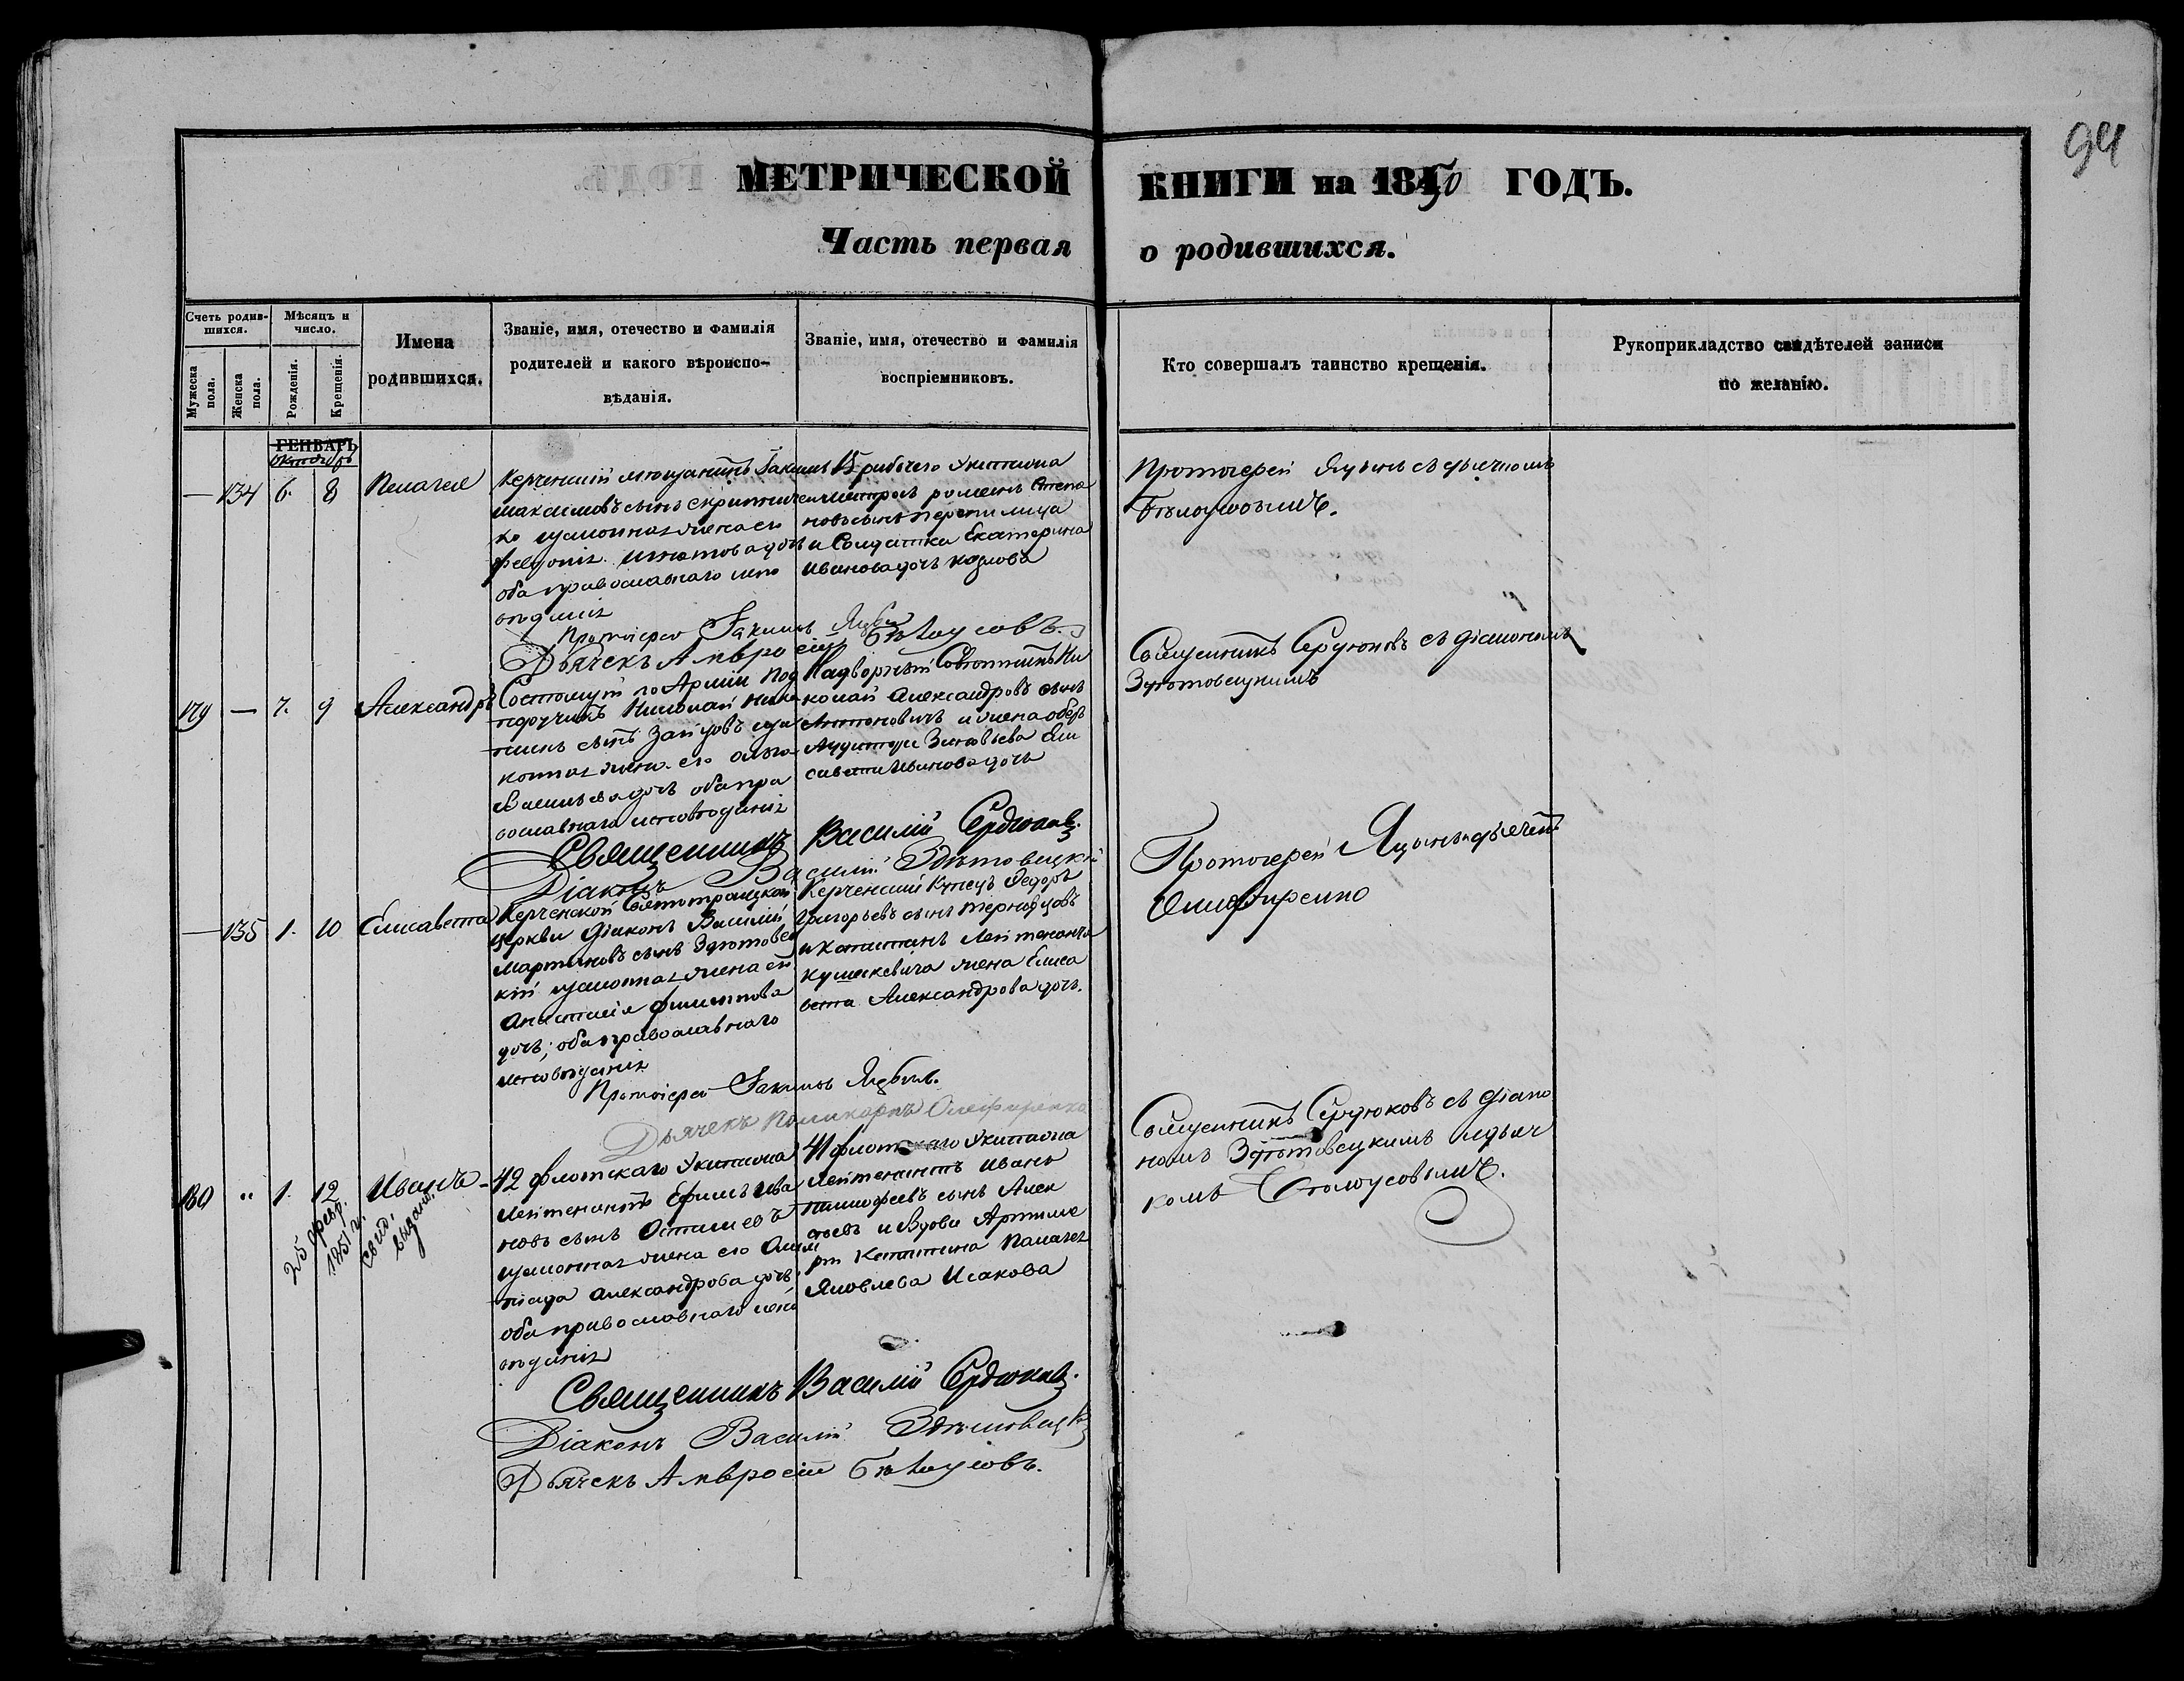 94
МЕТРИЧЕСКОЙ КНИГИ на 1850 ГОДЪ.
Часть первая о родившихся.
Счетъ родившихся.
Мужеска пола.
Женска пола.
Мѣсяцъ и число.
Рожденія.
Крещенія.
Имена родившихся.
Званіе, имя, отечество и фамилія
родителей и какого вѣроиспо-
вѣданія.
Званіе, имя, отечество и фамилія
воспріемниковъ.
Кто совершалъ таинство крещенія.
Рукоприкладство свидѣтелей записи
по желанію.
ГЕНВАРЬ
Октябрь
— 134 6. 8 Пелагея
Керченскій мещанинъ Іакимъ
Максимовъ сынъ
ко законная жена его
Февронія дочь
оба православнаго испо
вѣданія
15 рабочего Экипажа
Романъ Степа
новъ сынъ Перепилица
и Солдатка Екатерина
Иванова дочь Козлова
Протоіерей съ дьячкомъ
Бѣлоусовымъ.
Протоіерей Іакимъ
Дьячекъ Амвросій Бѣлоусовъ.
179 — 7. 9 Александръ
Состоящій по Арміи Под
поручикъ Николай
сынъ Зайцовъ за
конная жена его
Васильева дочь оба пра
вославнаго исповѣданія
Надворный Совѣтникъ Ни
колай Александровъ сынъ
Антоновичъ и жена оберъ
Аудитора Зиновьева Ели
савета Иванова дочь
Священникъ Сердюковъ съ діакономъ
Здѣтовецкимъ
Священникъ Василій Сердюковъ.
Діаконъ Василій Здѣтовецкій
— 135 1. 10 Елисавета
Керченской Святотроицкой
церкви діаконъ Василій
Мартиновъ сынъ Здѣтовец
кій законная жена его
Анастасія Филиппова
дочь; оба православнаго
исповѣданія
Керченскій Купецъ Федоръ
Григорьевъ сынъ
и капитанъ Лейтенанта
Кушкевича жена Елиса
вета Александрова дочь.
Протоіерей
Олефиренко
Протоіерей Іакимъ
Дьячекъ Поликарпъ Олефиренко
180 " 1. 12 Иванъ
25 февр.
1851 г.
свид.
выдано.
42 флотскаго Экипажа
Лейтенантъ Ефимъ Ива
новъ сынъ
законная жена его Олим
піада Александрова дочь;
оба православнаго испо
вѣданія
41 флотскаго Экипажа
Лейтенантъ Иванъ
Тимофеевъ сынъ Алек
сѣевъ и Вдова Артилле
ріи Капитана Палагея
Яковлева Исакова
Священникъ Сердюковъ съ діако
номъ Здѣтовецкимъ и дьяч
комъ Бѣлоусовымъ.
Священникъ Василій Сердюковъ.
Діаконъ Василій Здѣтовецкій
Дьячекъ Амвросій Бѣлоусовъ.